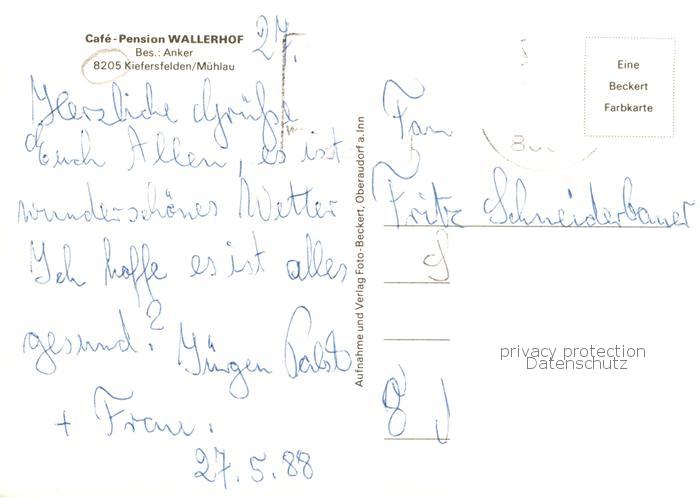 Café-Pension WALLERHOF
Bes.: Anker
8205 Kiefersfelden/Mühlau
27.
Herzliche Grüße
Euch Allen, es ist
wunderschönes Wetter
Ich hoffe es ist alles
gesund? Jürgen
+ Frau.
27.5.88
Aufnahme und Verlag Foto-Beckert, Oberaudorf a. Inn
Eine
Beckert
Farbkarte
Fam
Fritz Schneiderbauer
8
privacy protection
Datenschutz